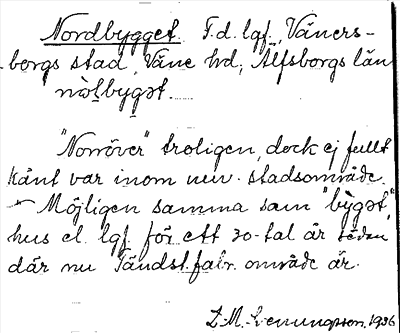 Nordbygget. F.d. lgf. Väners-
borgs stad, Väne hd, Älfsborgs län
"Norröver" troligen, dock ej fullt
känt var inom nuv. stadsområde.
Möjligen samma som "bỳgət",
hus el. lgf. för ett 30-tal år sedan
där nu Tändst.fabr. område är.
1936